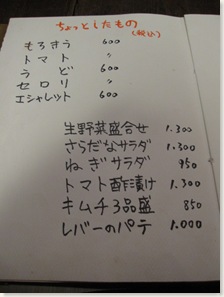 ちょっとしたもの
(税込)
もろきう 600
トマト 〃
うど 600
セロリ 〃
エシャレット 600
生野菜盛合せ 1.300
さらだなサラダ 1.300
ねぎサラダ 950
トマト酢漬け 1.300
キムチ3品盛 850
レバーのパテ 1.000